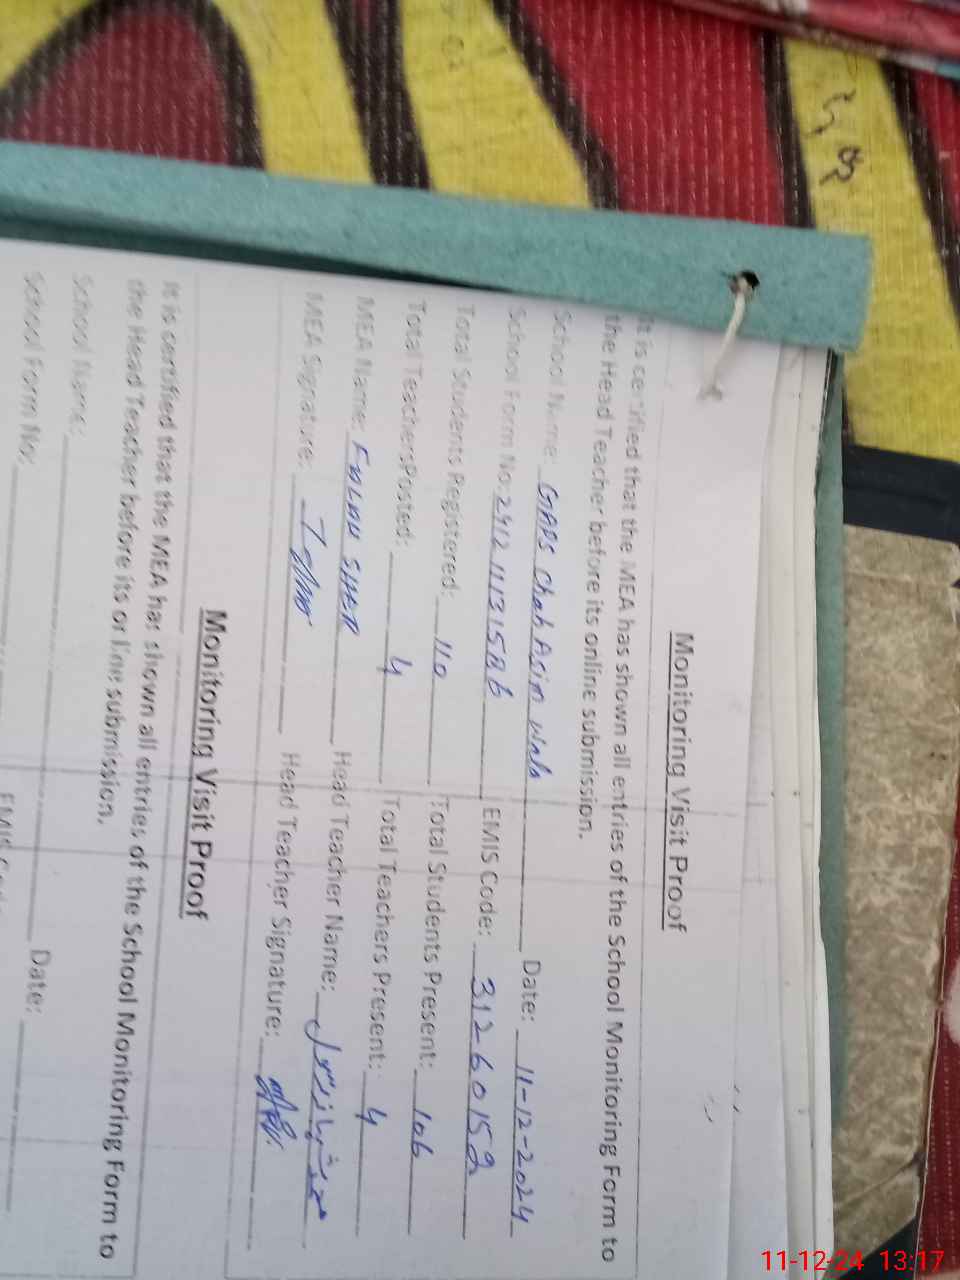 Monitoring Visit Proof
It is certified that the MEA has shown all entries of the School Monitoring Form to
the Head Teacher before its online submission.
School Name: GAPS Chah Asim Wala Date: 11-12-2024
School Form No: 24121113158B6 EMIS Code: 31260152
Total Students Registered: 110 Total Students Present: 106
Total TeachersPosted: 4 Total Teachers Present: 4
MEA Name: SHER Head Teacher Name: محمد شہباز رسول
MEA Signature: Head Teacher Signature:
Monitoring Visit Proof
It is certified that the MEA has shown all entries of the School Monitoring Form to
the Head Teacher before its on line submission.
School Name: Date:
School Form No: EMIS
11-12-24 13:17